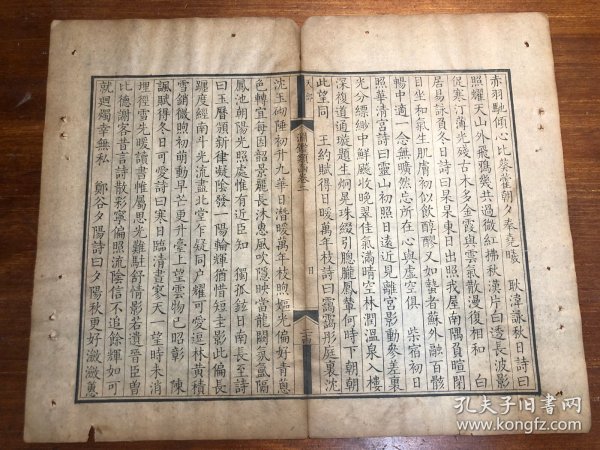 赤羽馳傾心比葵藿朝夕奉堯曦　耿湋詠秋日詩曰
照耀天山外飛鴉幾共過微紅拂秋漢片白透長波影
促寒汀薄光殘古木多金霞與雲氣散漫復相和　白
居易詠負冬日詩曰杲杲冬日出照我屋南隅負暄閉
目坐和氣生肌膚初似飲醇醪又如蟄者蘇外融百骸
暢中適一念無曠然忘所在心與虛空俱　柴宿初日
照華清宮詩曰靈山初照日遠近見離宮影動參差裏
光分縹緲中鮮飈收晚翠佳氣滿晴空林潤溫泉入樓
深復道通璇題生炯晃珠綴引曈曨鳳輦何時下朝朝
此望同　王約賦得日暖萬年枝詩曰靄靄彤庭裏沈
天部
淵鑑類函卷二
日
十四
沈玉砌陲初升九華日潛暖萬年枝煦嫗光偏好青蔥
色轉宜每因韶景麗長沐惠風吹隱映當龍闕氛氳隔
鳳池朝陽光照處惟有近臣知　獨孤鉉日南長至詩
曰玉曆頒新律凝陰發一陽輪輝猶惜短圭影此偏長
躔度經南斗光流盡北堂乍疑同戶耀可愛逗林黃積
雪銷微煦初萌動早芒更升臺上望雲物已昭彰　陳
諷賦得冬日可愛詩曰寒日臨清晝寒天一望時未消
埋徑雪先暖讀書帷屬思光難駐舒情影若遺晉臣曾
比德謝客昔言詩散彩寧偏照流陰信不追餘輝如可
就迴燭幸無私　鄭谷夕陽詩曰夕陽秋更好瀲瀲蕙
孔夫子旧书网
www.kongfz.com